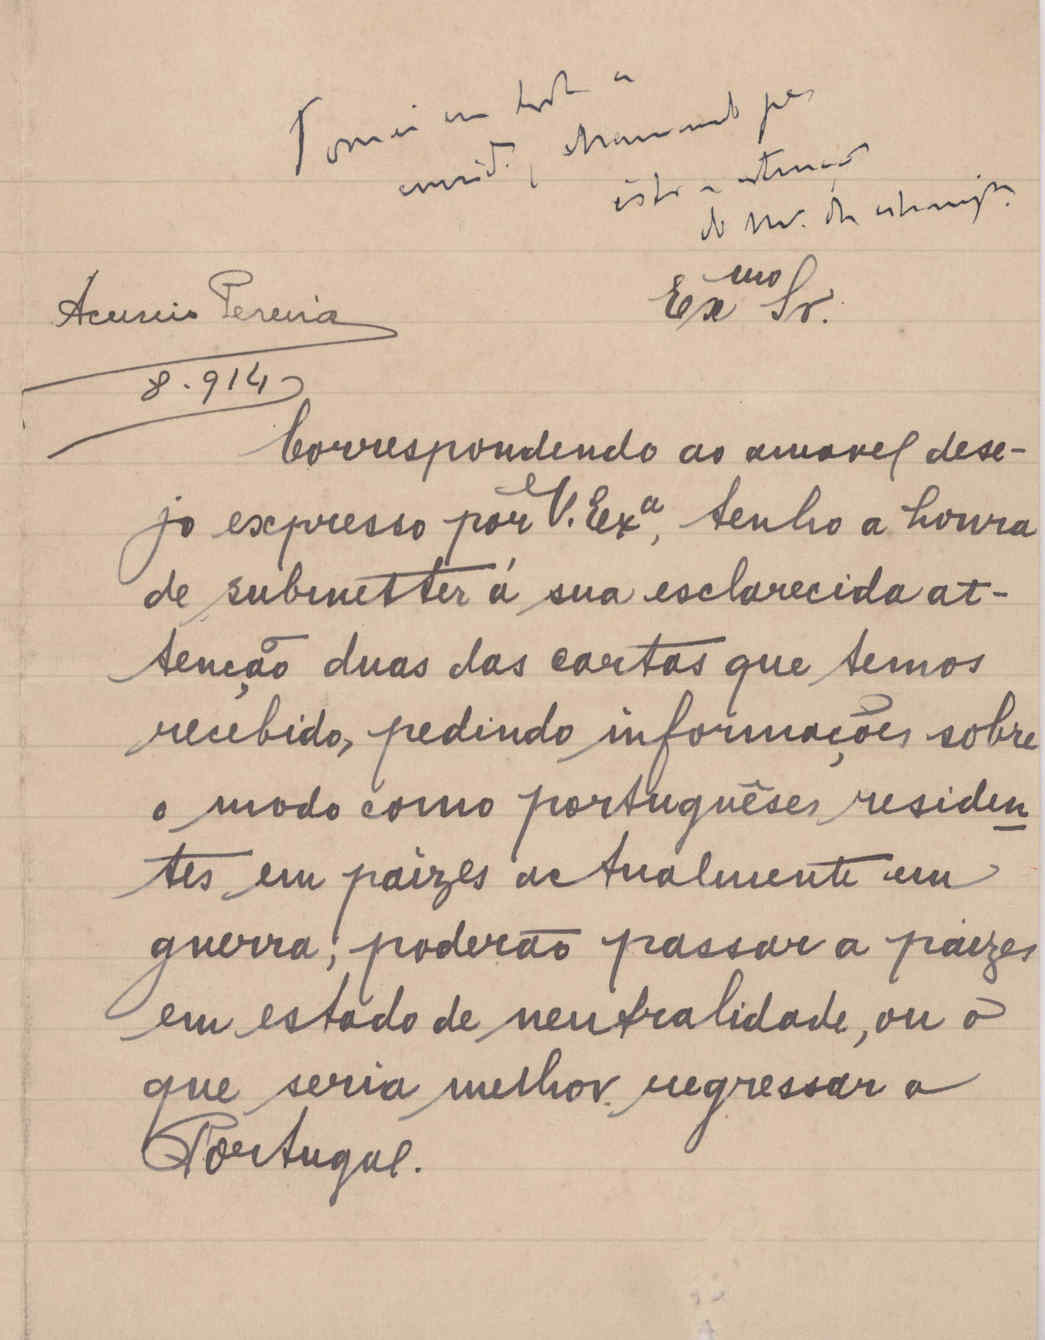 Tomei em
chamando
a attenção
do
Ex.mo Sr.
Acurcio Pereira
8.914
Correspondendo ao amavel dese-
jo expresso por V. Ex.a, tenho a honra
de submetter á sua esclarecida at-
tenção duas das cartas que temos
recebido, pedindo informações sobre
o modo como portuguêses residen
tes em paizes actualmente em
guerra, poderão passar a paizes
em estado de neutralidade, ou o
que seria melhor regressar a
Portugal.